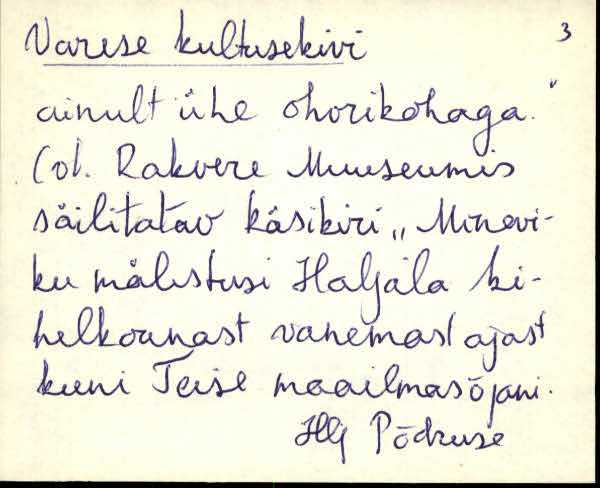 Varese kultusekivi 3
ainult ühe ohvrikohaga."
(vt. Rakvere Muuseumis
säilitatav käsikiri „Minevi-
ku mälestusi Haljala ki-
helkonnast vanemast ajast
kuni Teise maailmasõjani.
Põdruse